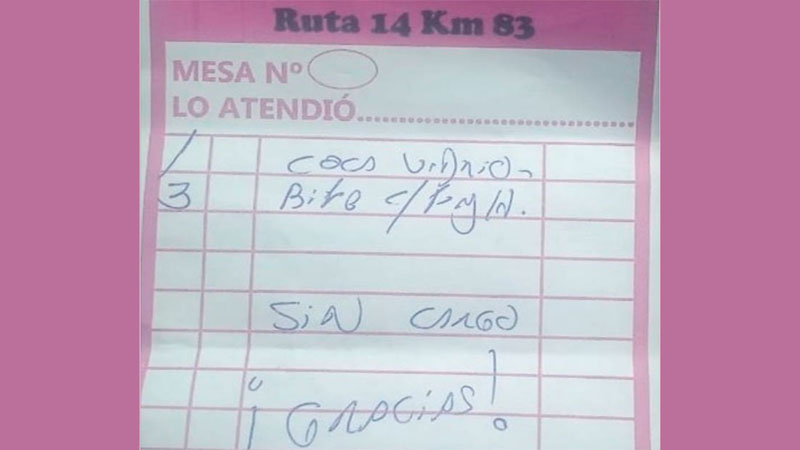 Ruta 14 Km 83
MESA Nº
LO ATENDIÓ
1 coca vidrio
3 Bife
SIN CARGO
¡GRACIAS!